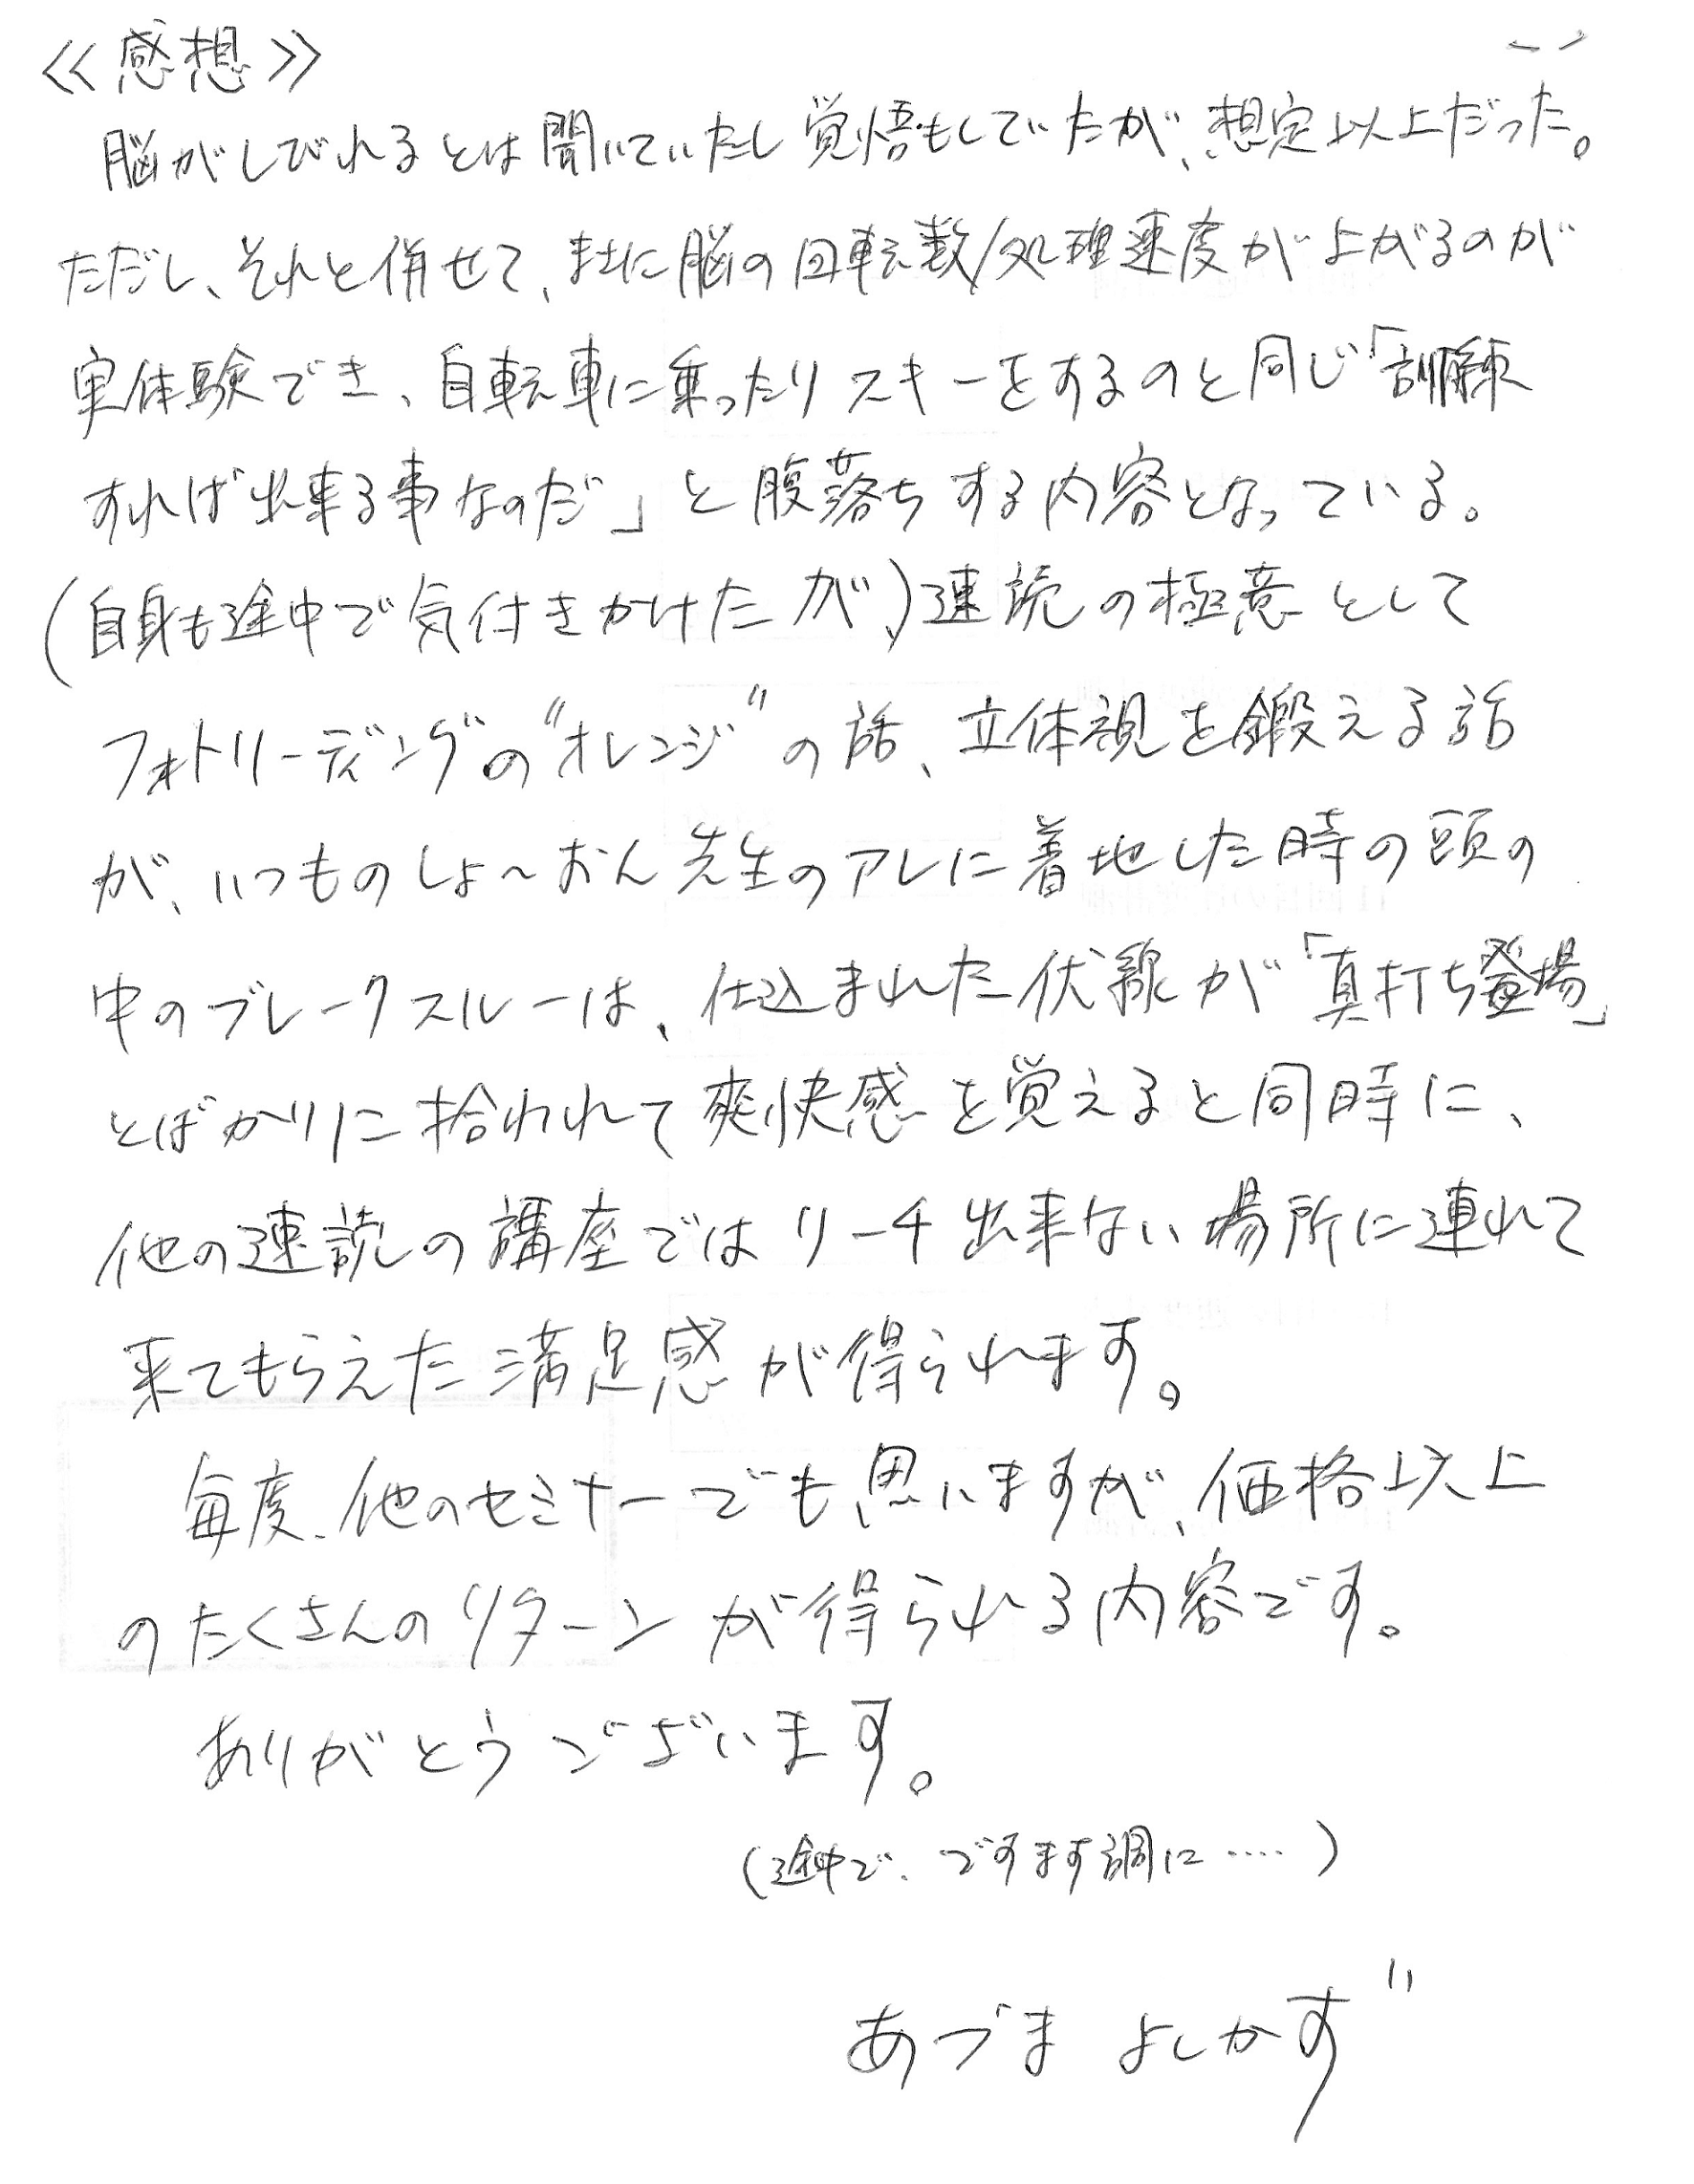 ≪感想≫
脳がしびれるとは聞いていたし覚悟もしていたが、想定以上だった。
ただし、それと併せて、まさに脳の回転数/処理速度が上がるのが
実体験でき、自転車に乗ったりスキーをするのと同じ「訓練
すれば出来る事なのだ」と腹落ちする内容となっている。
(自身も途中で気付きかけたが、)速読の極意として
フォトリーディングの"オレンジ"の話、立体視を鍛える話
が、いつものしょ～おん先生のアレに着地した時の頭の
中のブレークスルーは、仕込まれた伏線が「真打ち登場」
とばかりに拾われて爽快感を覚えると同時に、
他の速読の講座ではリーチ出来ない場所に連れて
来てもらえた満足感が得られます。
毎度、他のセミナーでも思いますが、価格以上
のたくさんのリターンが得られる内容です。
ありがとうございます。
(途中で、ですます調に……)
あづま よしかず